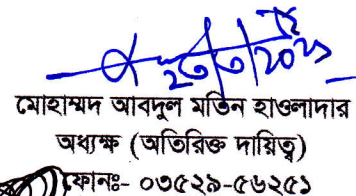 মোহাম্মদ আবদুল মতিন হাওলাদার
অধ্যক্ষ (অতিরিক্ত দায়িত্ব)
ফোনঃ- ০৩৫২৯-৫৬২৫১